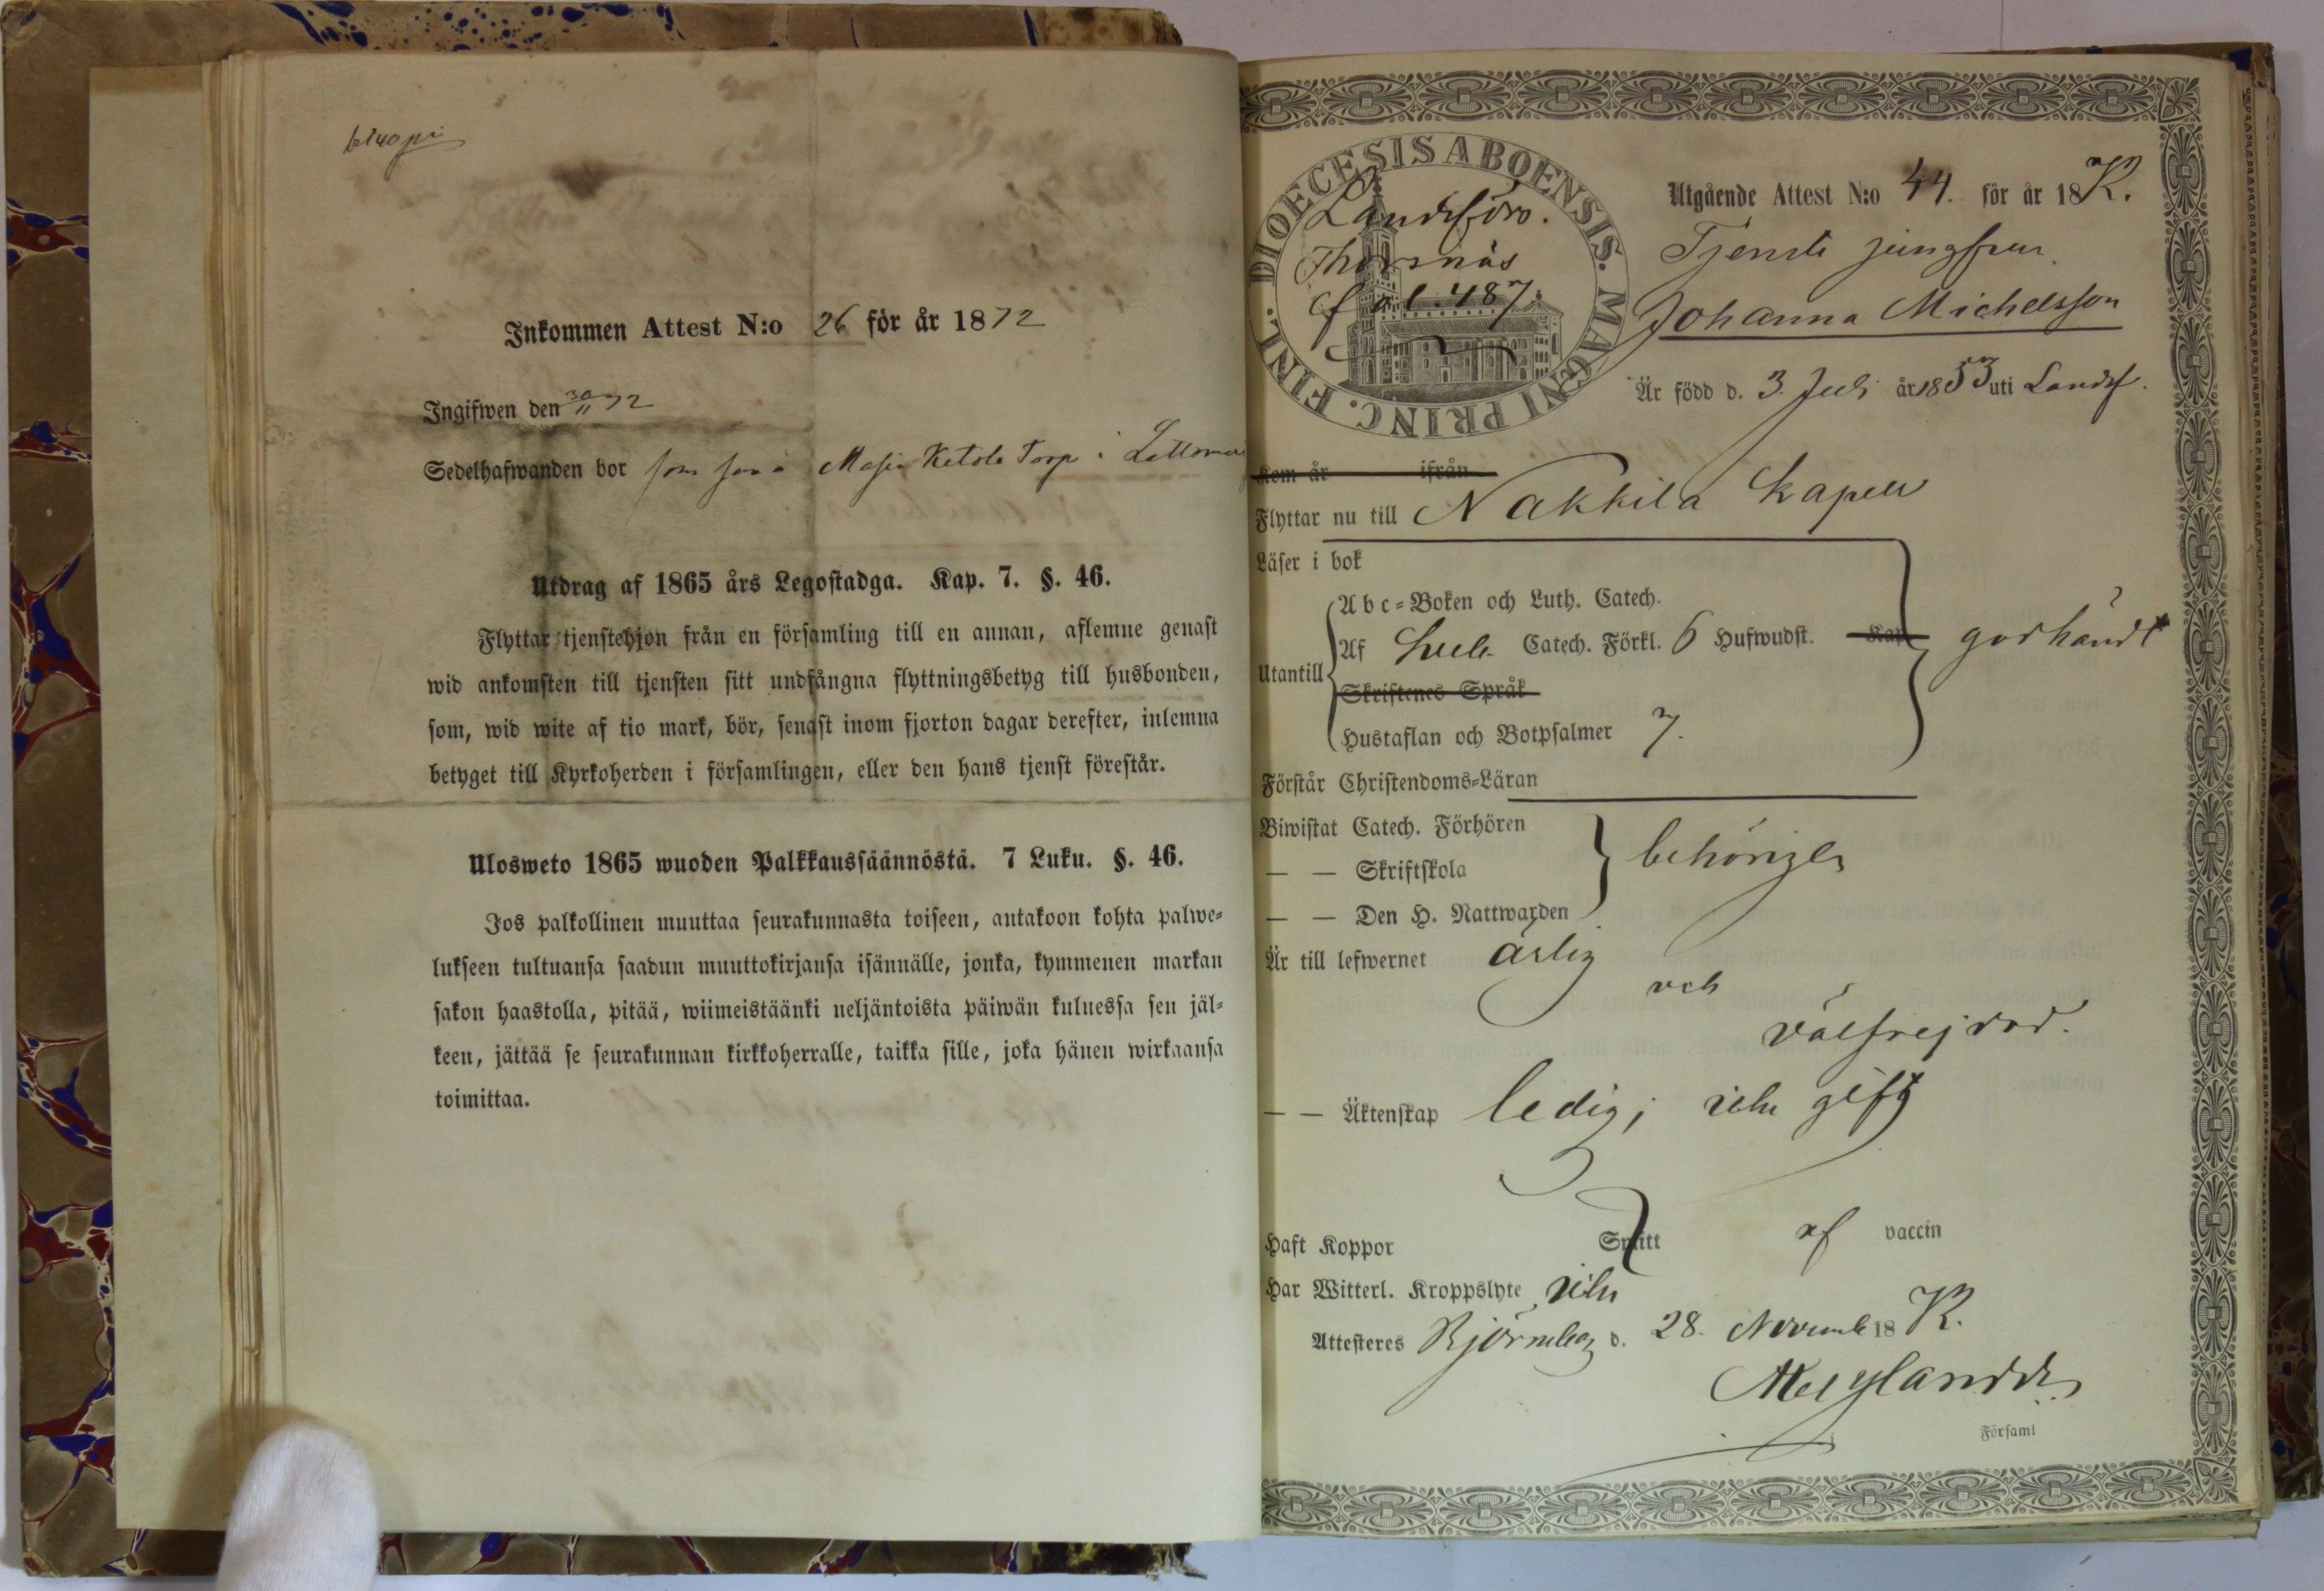 Inkommen Attest N:o 26 för år 1872
Ingifwen den 30/11 72
Sedelhafwanden bor i Lattomeri
Utdrag af 1865 års Legostadga. Kap. 7. §. 46.
Flyttar tjenstehjon från en församling till en annan, aflemne genast
wid ankomsten till tjensten sitt undfångna flyttningsbetyg till husbonden,
som, wid wite af tio mark, bör, senast inom fjorton dagar derefter, inlemna
betyget till Kyrkoherden i församlingen, eller den hans tjenst förestår.
Ulosweto 1865 wuoden Palkkaussäännöstä. 7 Luku. §. 46.
Jos palkollinen muuttaa seurakunnasta toiseen, antakoon kohta palwe-
lukseen tultuansa saadun muuttokirjansa isännälle, jonka, kymmenen markan
sakon haastolla, pitää, wiimeistäänki neljäntoista päiwän kuluessa sen jäl-
keen, jättää se seurakunnan kirkkoherralle, taikka sille, joka hänen wirkaansa
toimittaa.
DIOECESIS ABOENSIS. MAGNI PRINC. FINL.
Landsförs.
Thorsnäs
fol. 487
Utgående Attest N:o 44. för år 18
Tjenste jungfrun
Johanna Michelsson
Är född d. 3. Juli år 1853 uti Landsf.
Kom år ifrån
Flyttar nu till Nakkila Kapell
Läser i bok
Abc-Boken och Luth. Catech.
Utantill Af Catech. Förkl. 6 Hufwudst. Kap. godkändt
Skriftenes Språk
Hustaflan och Botpsalmer 7.
Förstår Christendoms-Läran
Biwistat Catech. Förhören
— — Skriftskola behörigen
— — Den H. Nattwarden
Är till lefwernet ärlig
och
välfrejdad.
— — Äktenskap ledig, icke gift
Haft Koppor Smitt af vaccin
Har Witterl. Kroppslyte icke
Attesteres Björneborg d. 28. Novemb 18
Församl